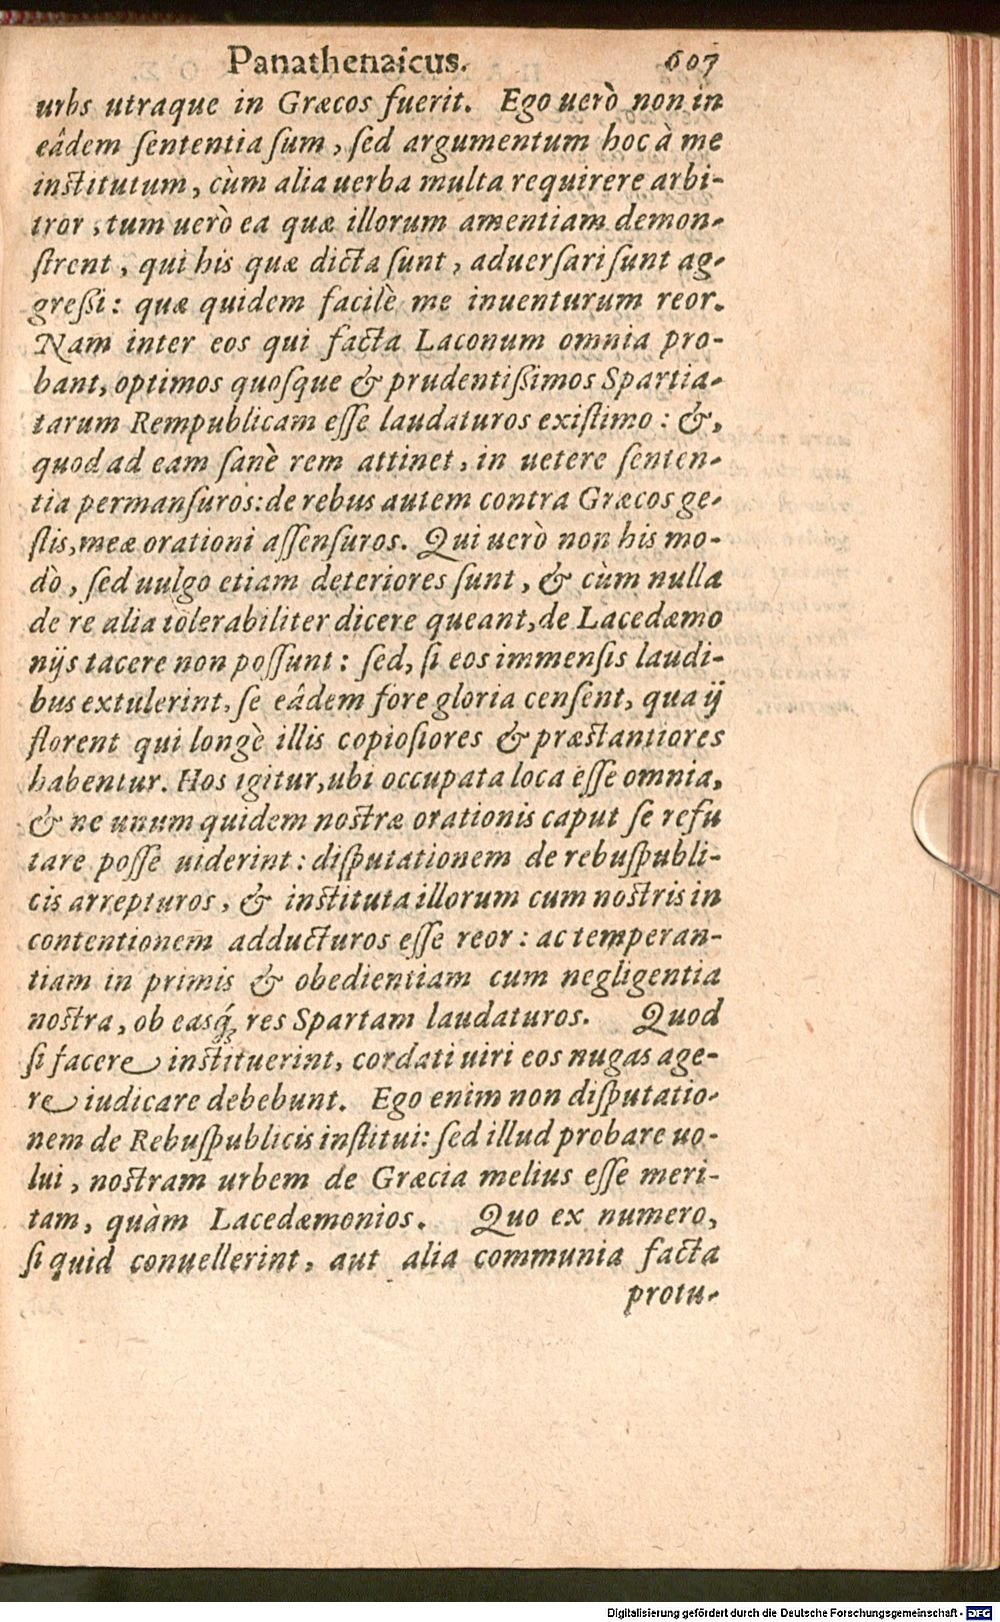 Panathenaicus. 607
urbs utraque in Græcos fuerit. Ego uerò non in
eâdem ſententia ſum, ſed argumentum hoc à me
inſtitutum, cùm alia uerba multa requirere arbi-
tror, tum uerò ea quæ illorum amentiam demon-
ſtrent, qui his quæ dicta ſunt, aduerſari ſunt ag-
greßi: quæ quidem facilè me inuenturum reor.
Nam inter eos qui facta Laconum omnia pro-
bant, optimos quoſque & prudentißimos Spartia-
tarum Rempublicam eſſe laudaturos exiſtimo: &,
quod ad eam ſanè rem attinet, in uetere ſenten-
tia permanſuros: de rebus autem contra Græcos ge-
ſtis, meæ orationi aſſenſuros. Qui uerò non his mo-
dò, ſed uulgo etiam deteriores ſunt, & cùm nulla
de re alia tolerabiliter dicere queant, de Lacedæmo
nijs tacere non poſſunt: ſed, ſi eos immenſis laudi-
bus extulerint, ſe eâdem fore gloria cenſent, qua ij
florent qui longè illis copioſiores & præſtantiores
habentur. Hos igitur, ubi occupata loca eſſe omnia,
& ne unum quidem noſtræ orationis caput ſe refu
tare poſſe uiderint: diſputationem de rebuſpubli-
cis arrepturos, & inſtituta illorum cum noſtris in
contentionem adducturos eſſe reor: ac temperan-
tiam in primis & obedientiam cum negligentia
noſtra, ob easq́; res Spartam laudaturos. Quod
ſi facere inſtituerint, cordati uiri eos nugas age-
re iudicare debebunt. Ego enim non diſputatio-
nem de Rebuſpublicis inſtitui: ſed illud probare uo-
lui, noſtram urbem de Græcia melius eſſe meri-
tam, quàm Lacedæmonios. Quo ex numero,
ſi quid conuellerint, aut alia communia facta
protu-
Digitalisierung gefördert durch die Deutsche Forschungsgemeinschaft - DFG